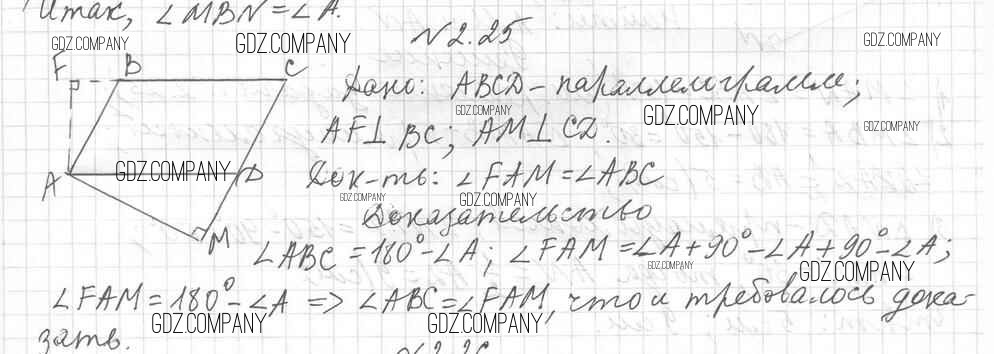 Итак, ∠MBN = ∠A.
GDZ.COMPANY GDZ.COMPANY №2.25 GDZ.COMPANY
F B C
Дано: ABCD – параллелограмм;
GDZ.COMPANY GDZ.COMPANY GDZ.COMPANY
AF⊥BC; AM⊥CD.
A GDZ.COMPANY D
Док-ть: ∠FAM = ∠ABC
GDZ.COMPANY GDZ.COMPANY
Доказательство
M
∠ABC = 180° – ∠A; ∠FAM = ∠A + 90° – ∠A + 90° – ∠A;
GDZ.COMPANY GDZ.COMPANY
∠FAM = 180° – ∠A => ∠ABC = ∠FAM, что и требовалось дока-
GDZ.COMPANY GDZ.COMPANY
зать.